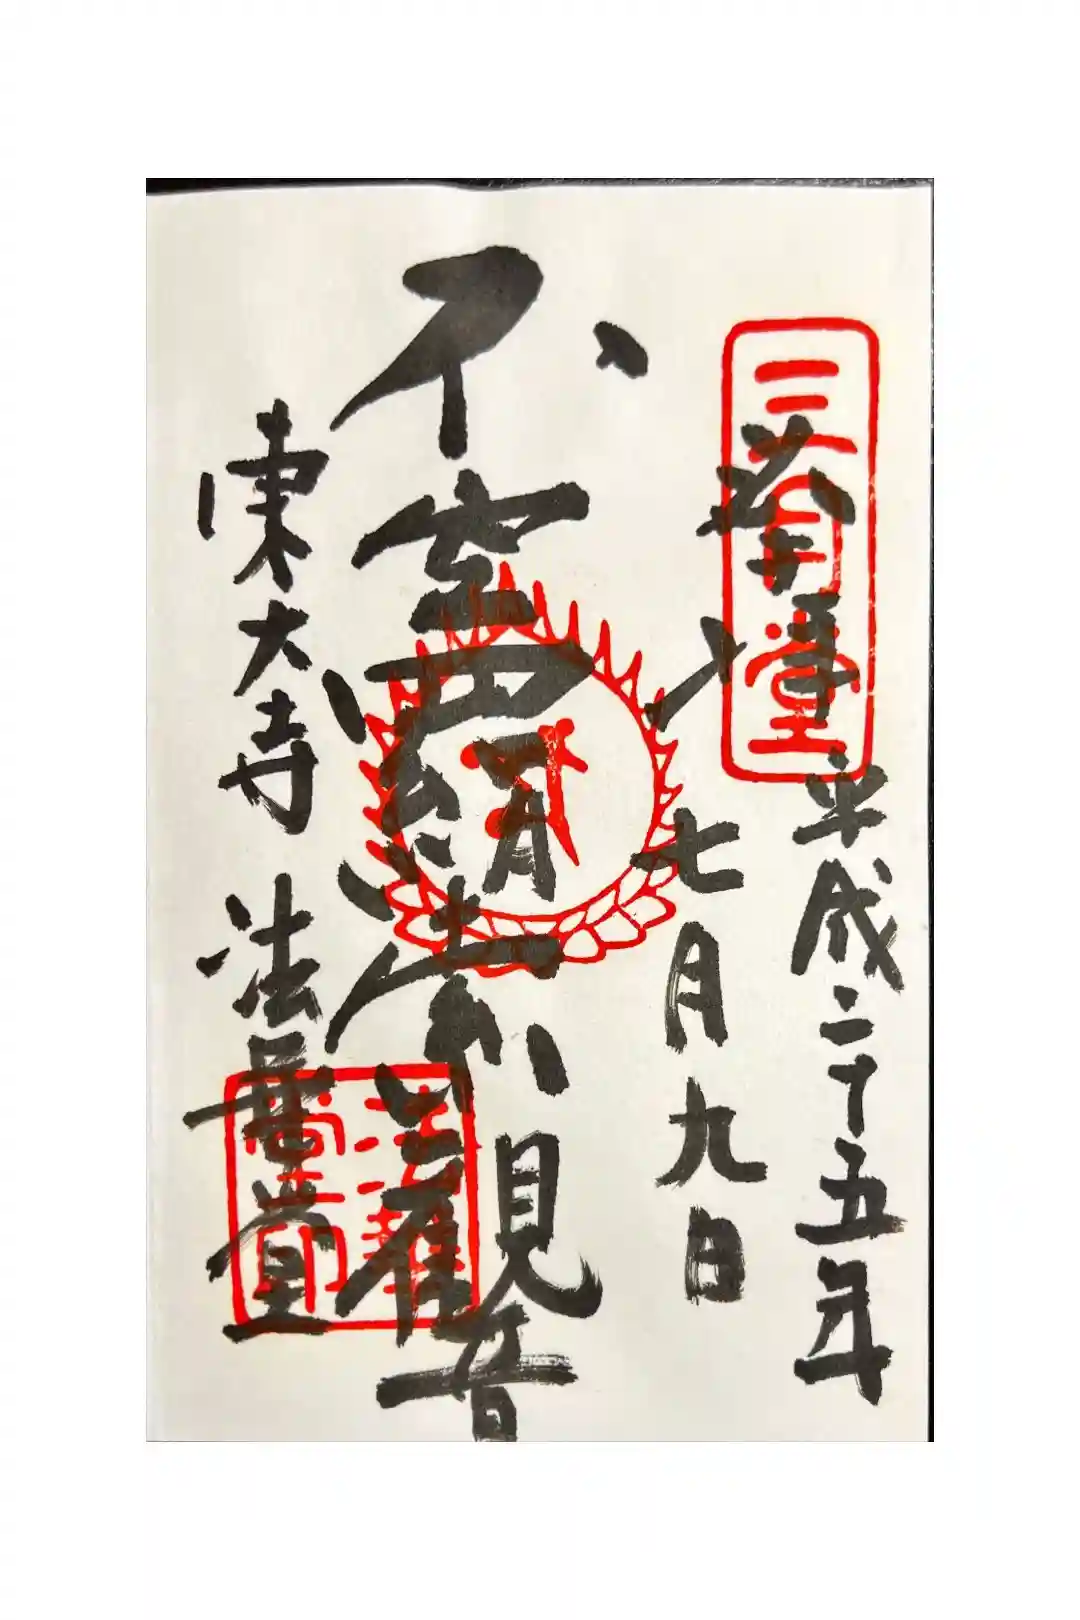 奉拝
平成二十五年
七月九日
三月堂
不空羂索観音
東大寺 法華堂
法華堂印